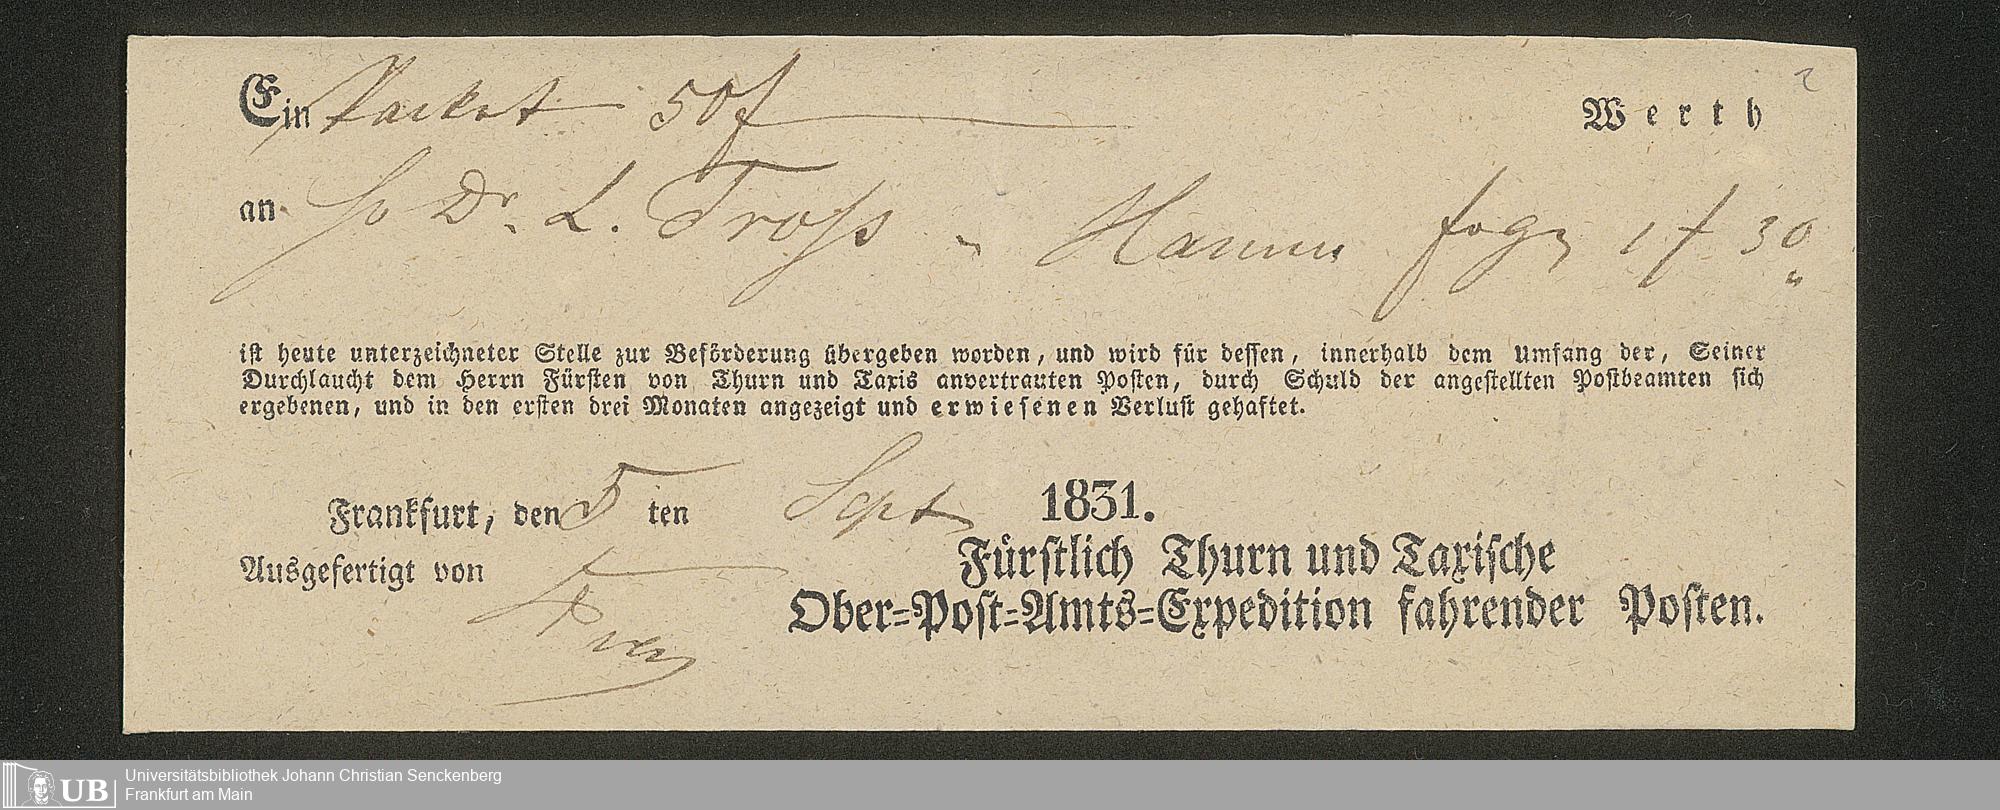 Ein Packet 50 f Werth
an H Dr. L. Tross Hamm 1 f 30
ist heute unterzeichneter Stelle zur Beförderung übergeben worden, und wird für dessen, innerhalb dem Umfang der, Seiner
Durchlaucht dem Herrn Fürsten von Thurn und Taxis anvertrauten Posten, durch Schuld der angestellten Postbeamten sich
ergebenen, und in den ersten drei Monaten angezeigt und erwiesenen Verlust gehaftet.
Frankfurt, den 5 ten Sept 1831.
Ausgefertigt von
Fürstlich Thurn und Taxische
Ober-Post-Amts-Expedition fahrender Posten.
UB Universitätsbibliothek Johann Christian Senckenberg
Frankfurt am Main